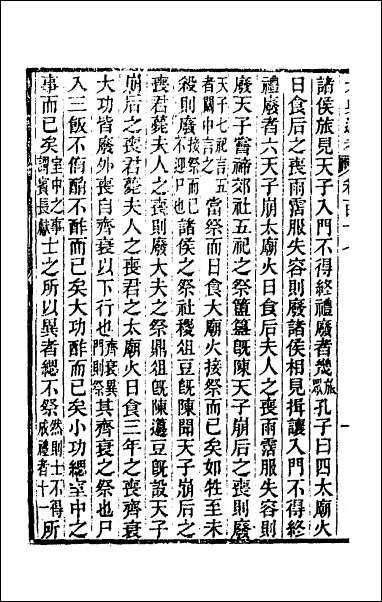 諸侯旅見天子入門不得終禮廢者幾旅眾孔子曰四太廟火
日食后之喪雨霑服失容則廢諸侯相見揖讓入門不得終
禮廢者六天子崩太廟火日食后夫人之喪雨霑服失容則
廢天子嘗禘郊社五祀之祭簠簋旣陳天子崩后之喪則廢
天子七祀言五者關中言之當祭而日食太廟火接祭而已矣如牲至未
殺則廢接祭而已不迎尸也諸侯之祭社稷俎豆旣陳聞天子崩后之
喪君薨夫人之喪則廢大夫之祭鼎俎旣陳籩豆旣設天子
崩后之喪君薨夫人之喪君之太廟火日食三年之喪齊衰
大功皆廢外喪自齊衰以下行也齊衰異門則祭其齊衰之祭也尸
入三飯不侑酳不酢而已矣大功酢而已矣小功緦室中之
事而已矣室中之事謂賓長獻士之所以異者緦不祭然則士不得成禮者十一所